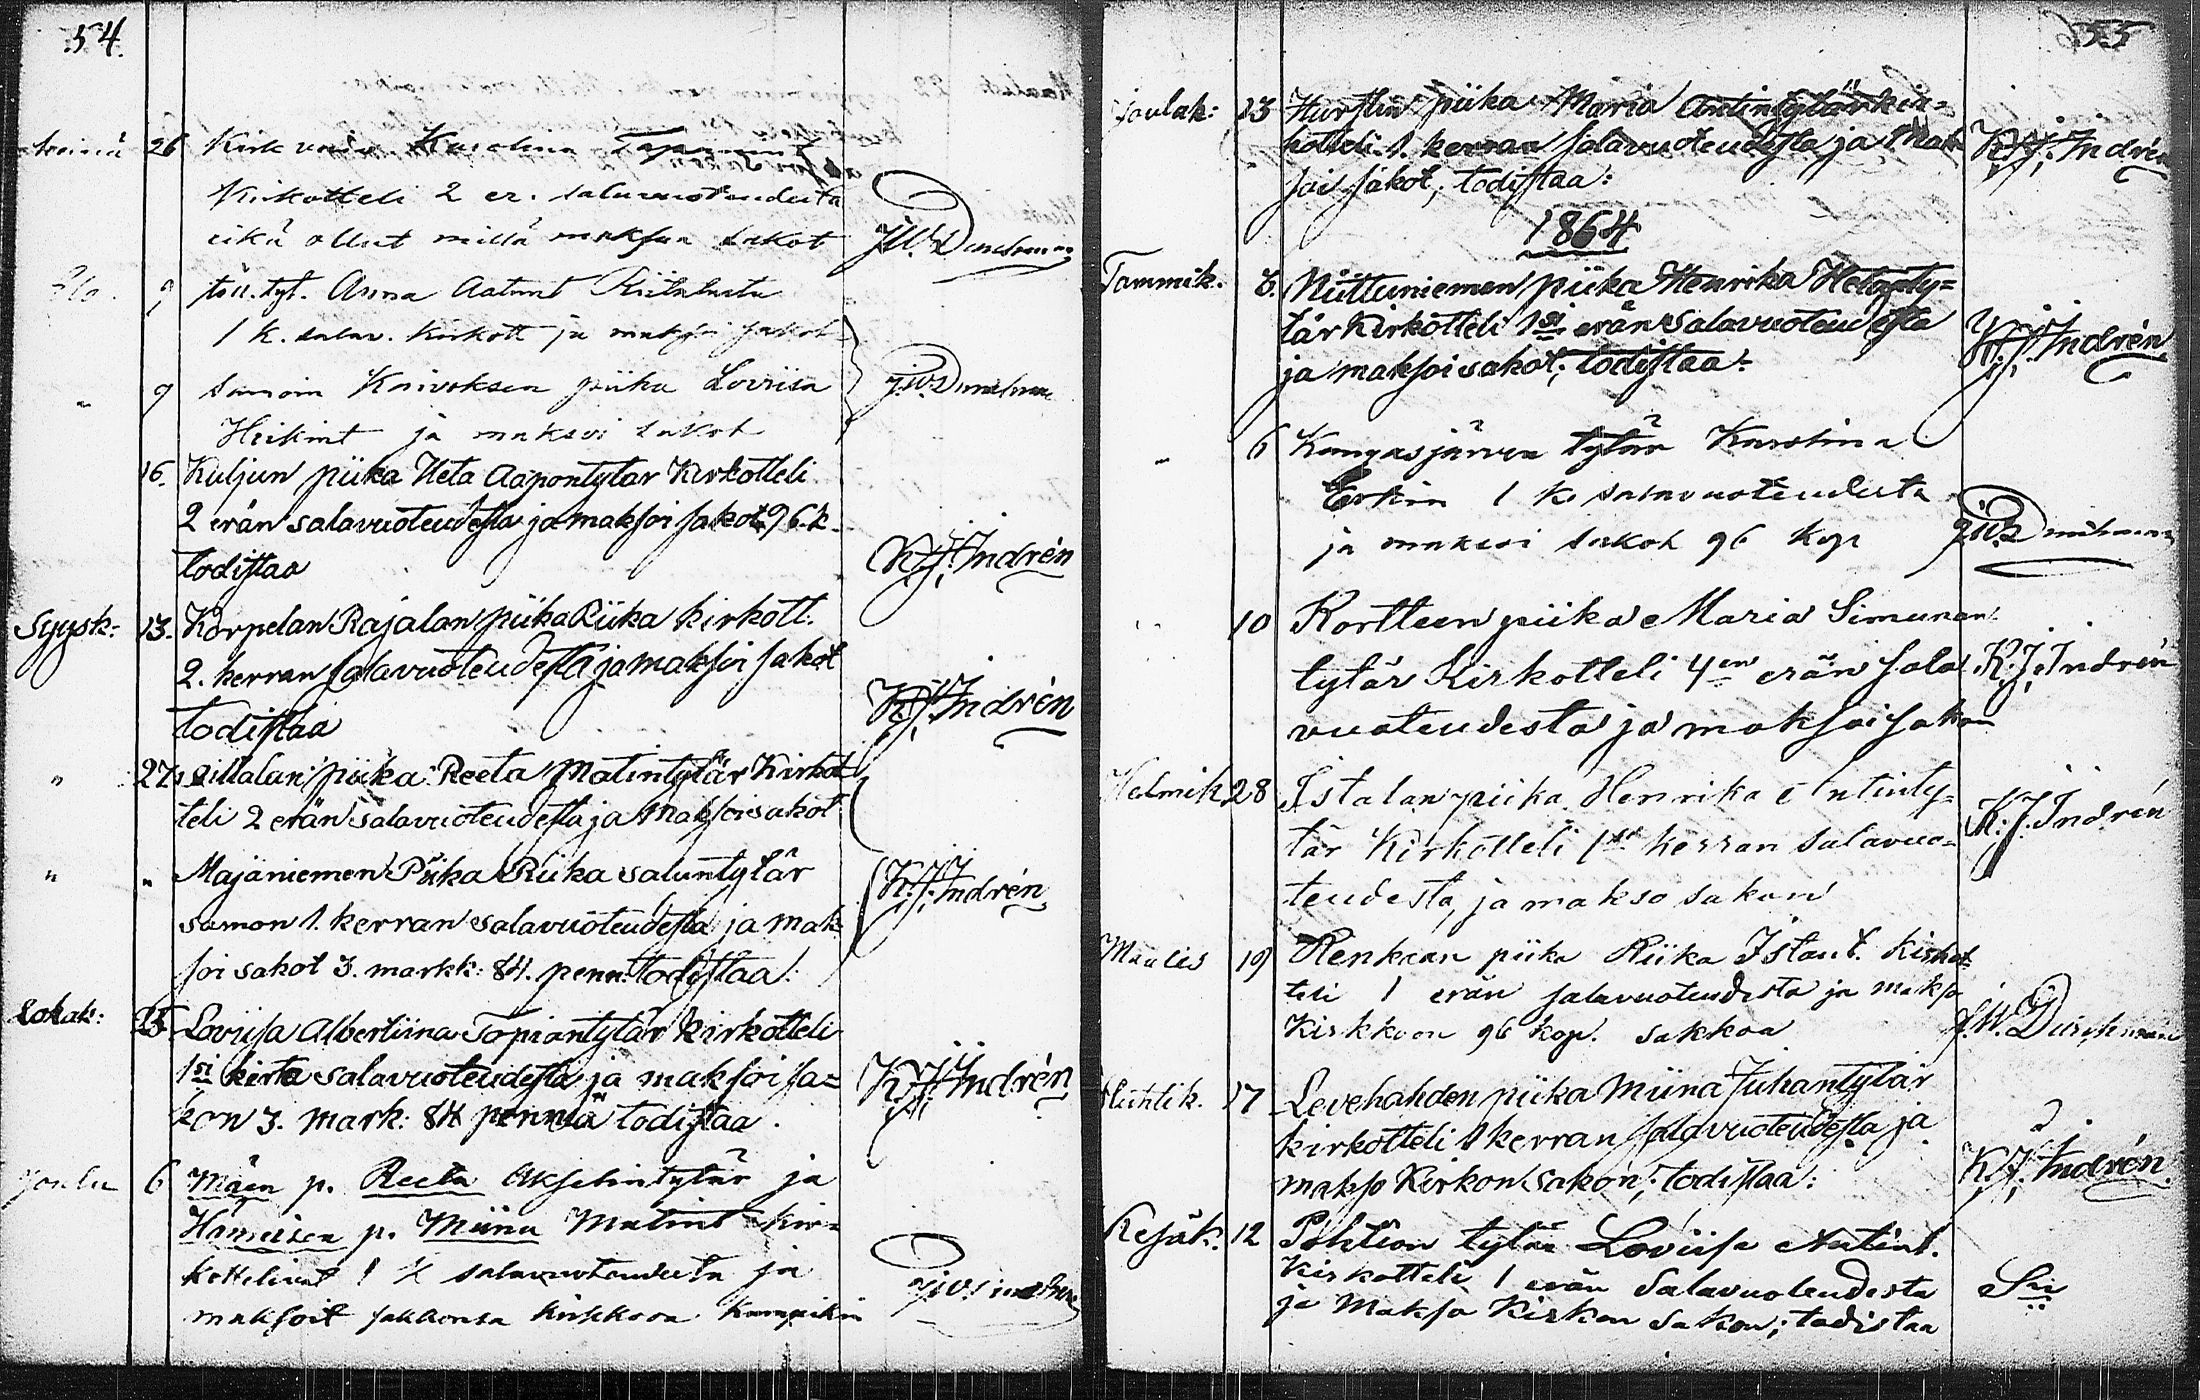 54.
heinä 26 Kirk vaivo Karolina Tapanint
Kirkotteli 2 er. salavuoteudesta
eikä ollut millä maksaa sakot J.W. Durchman
Elo. 9 tön. tyt. Anna Aatamt
1 k. salav. kirkott ja maksoi sakot
" 9 Samoin Kaivoksen piika Loviisa J.W. Durchman
Heikint ja maksoi sakot
16. Kuljun piika Heta Aapontytar Kirkotteli
2 erän salavuoteudesta ja maksoi sakot 96. k.
todistaa K.J. Indrén
Syysk: 13. Korpelan Rajalan piika Riika kirkott.
2. kerran salavuoteudesta ja maksoi sakot
todistaa K.J. Indrén
" 27. piika Reeta Matintytär Kirkot
teli 2 erän salavuoteudesta ja maksoi sakot
" " Majaniemen Piika Riika saluntytär
samon 1. kerran salavuoteudesta ja mak K.J. Indrén
soi sakot 3. markk: 84. penn: todistaa:
Lokak: 25 Loviisa Albertiina Topiantytär kirkotteli
1si kerta salavuoteudesta ja maksoi sa= K.J. Indrén
kon 3. mark: 84 penniä todistaa.
Joulu 6 Mäen p. Reeta Akselintytär ja
p. Miina Matint kir=
kottelivat 1 k salavuoteudesta ja J.W. Durchman
maksoit sakkonsa kirkkoon kumpikin
55
Joulak: 13 Hurstin piika Maria Antintytär kir=
kotteli 1. kerran salavuoteudesta ja mak K.J. Indrén
soi sakot, todistaa:
1864
Tammik. 6. Niittuniemen piika Henrika Heta
tär kirkotteli 1si erän salavuoteudesta
ja maksoi sakot; todistaa: K.J. Indrén
" 6 Kangasjärven tytär Karolina
Erkin 1 k salavuoteudesta
ja maksoi sakot 96 kop J.W. Durchman
" 10 Kortteen piika Maria Simunan
tytär Kirkotteli 4en erän sala K.J. Indrén
vuoteudesta ja maksoi sakon
Helmik 28 Istalan piika Henrika Antinty=
tär Kirkotteli 1si kerran salavuo= K.J. Indrén
teudesta, ja makso sakon
Maalis 19 Renkaan piika Riika Istant. kirkot
teli 1 erän salavuoteudesta ja makso
kirkkoon 96 kop. sakkoa J.W. Durchman
Huhtik. 17 Levehahden piika Miina Juhantytär
kirkotteli 1 kerran salavuoteudesta ja
makso Kirkon sakon; todistaa: K.J. Indrén.
Kesäk: 12 Pohtion tytär Loviisa Antint.
Kirkotteli 1 erän salavuoteudesta
ja Makso Kirkon sakon; todistaa